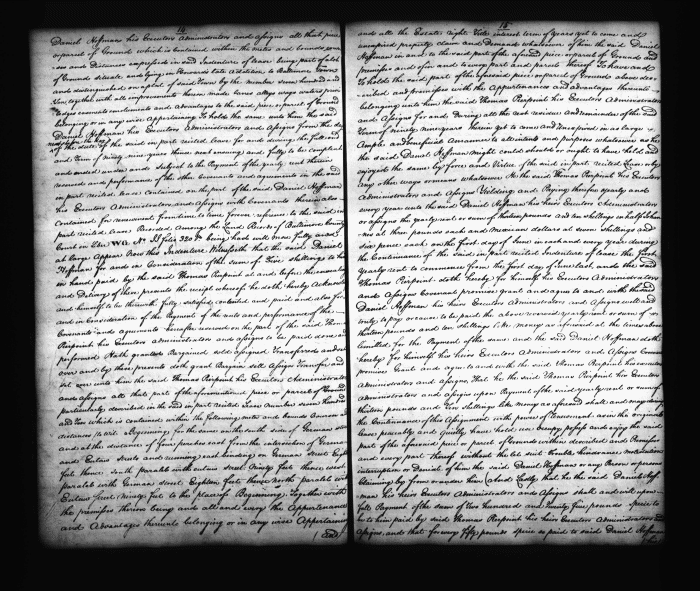 14
Daniel Hoffman his Executors Administrators and Assigns all that piece
or parcel of Ground which is contained within the metes and bounds, cour
ses and Distances expressed in said Indenture of lease being part of a lot
of Grounds situate and lying in
and distinguished on a plat of said Town by the number seven hundred and
together with all improvements therein made lanes alleys ways waters
and advantages to the said piece or parcel of Ground
belonging or in any wise Appertaining To hold the same unto him the said
Daniel Hoffman his Executors Administrators and Assigns from the day
of the date of the said in part recited lease for and during the full end
and Term of ninety nine years thence next ensuing and fully to be compleat
and ended under and subject to the Payment of the yearly rent therein
reserved and performance of the other Covenants and agreements in the said
in part recited lease contained on the part of the said Daniel Hoffman
his Executors Administrators and Assigns with Covenants therein also
Contained for renewal from time to time forever reference to the said in
part recited lease Recorded Among the Land Records of Baltimore County
Court in Liber WG No. folio being had will more fully and
at large Appear Now this Indenture Witnesseth that the said Daniel
Hoffman for and in Consideration of the sum of Five shillings to him
in hand paid by the said Thomas Pierpoint at and before the ensealing
and Delivery of these presents the receipt whereof he doth hereby Acknowledge
and himself to be therewith fully satisfied contented and paid and also for
and in Consideration of the Payment of the rents and performance of the
Covenants and agreements hereafter reserved on the part of the said Thomas
Pierpoint his Executors administrators and assigns to be paid done and
performed Hath granted Bargained sold assigned Transferred and set
over and by these presents doth grant Bargain sell Assign Transfer and
set over unto him the said Thomas Pierpoint his Executors Administrators
and assigns all that part of the aforementioned piece or parcel of Ground
particularly described in the said in part recited Lease Number seven hundred
and which is contained within the following metes and bounds courses and
distances to wit Beginning for the same on the south side of German street
and at the distance of four perches east from the intersection of German
and Eutaw streets and running east binding on German Street Eighteen
feet thence South parallel with Eutaw street Ninety feet thence west
parallel with German street Eighteen feet thence North parallel with
Eutaw street Ninety feet to the place of Beginning Together with
the premises thereon being and all and every the Appurtenances
and Advantages thereunto belonging or in any wise Appertaining
and
15
and all the Estate right Title interest term of years yet to come and
unexpired property claim and Demand whatsoever of him the said Daniel
Hoffman in and to the said part of the aforesaid piece or parcel of Ground and
premises and of in and to every part and parcel thereof To have and
To hold the said part of the aforesaid piece or parcel of Grounds above des
cribed and premises with the Appurtenances and advantages thereunto
belonging unto him the said Thomas Pierpoint his Executors Administrators
and Assigns for and During all the rest residue and remainder of the said
Term of ninety nine years therein yet to come and unexpired in as large
Ample and beneficial a manner to all intents and purposes whatsoever as he
the said Daniel Hoffman might could should or ought to have held and
enjoyed the same by force and Virtue of the said in part recited Lease or by
any other ways or means whatsoever He the said Thomas Pierpoint his Executors
Administrators and Assigns Yielding and Paying therefor yearly and
every year unto the said Daniel Hoffman his heirs Executors Administrators
or assigns the yearly rent or sum of thirteen pounds and ten shillings in half
at three pounds each and Mexican dollars at seven shillings and
six pence each on the first day of June in each and every year during
the Continuance of the said in part recited Indenture of lease the first
yearly rent to commence from the first day of June last, and the said
Thomas Pierpoint doth hereby for himself his heirs Executors Administrators
and Assigns Covenant promise grant and agree to and with the said
Daniel Hoffman his heirs Executors Administrators and Assigns well and
truly to pay or cause to be paid the above reserved yearly rent or sum of
thirteen pounds and ten shillings like money as aforesaid at the times above
limitted for the Payment of the same and the said Daniel Hoffman doth
hereby for himself his heirs Executors Administrators and Assigns Covenant
promise Grant and agree to and with the said Thomas Pierpoint his executors
Administrators and Assigns That he the said Thomas Pierpoint his Executors
Administrators and assigns upon Payment of the said yearly rent or sum of
thirteen pounds and ten shillings like money as aforesaid shall and may during
the Continuance of this Assignment with power of Renewment as in the original
lease peaceably and quietly have hold use occupy possess and enjoy the said
part of the aforesaid piece or parcel of Grounds within described and Premises
and every part thereof without the let suit trouble hindrance molestation
interruption or Denial of him the said Daniel Hoffman or any Person or persons
Claiming by from or under him And Lastly that he the said Daniel Hoff
man his heirs Executors Administrators and Assigns shall and will upon
full Payment of the sum of Two hundred and twenty five pounds specie to
be to him paid by said Thomas Pierpoint his heirs Executors Administrators and
Assigns, and that for every fifty pounds specie so paid to said Daniel Hoffman